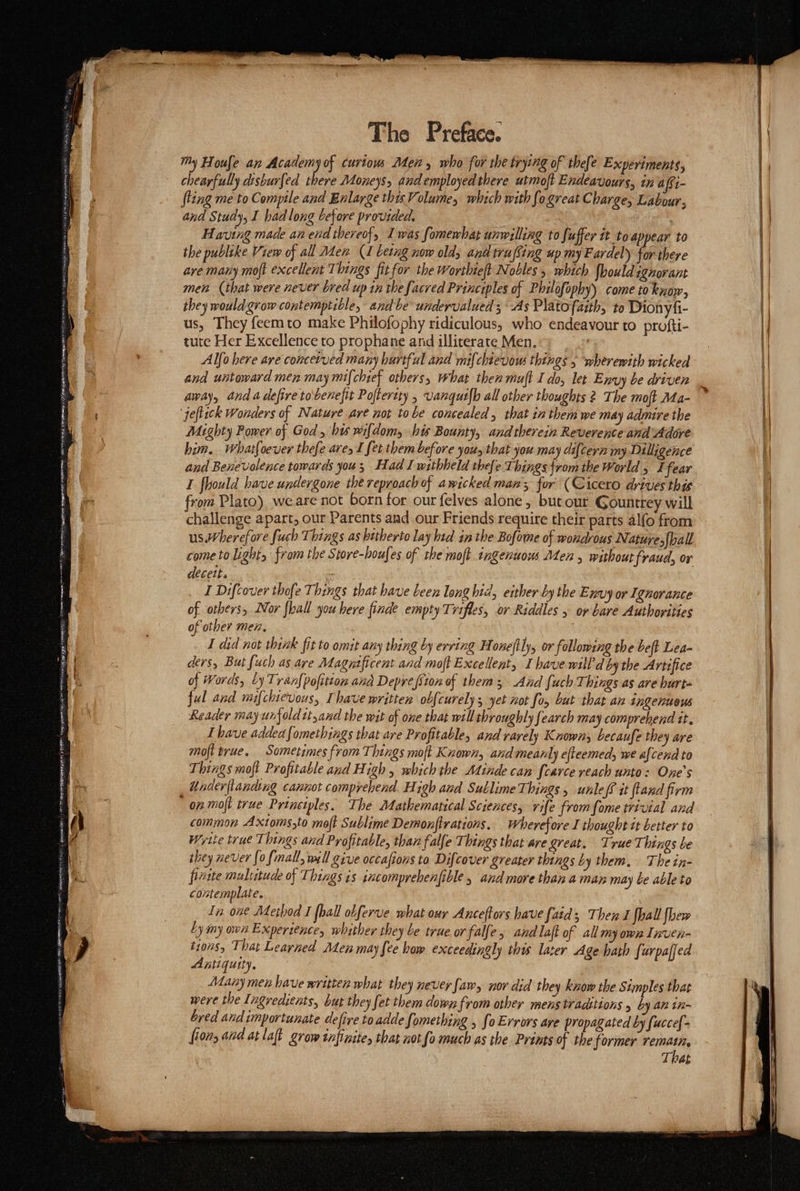 The Preface.
my Houſe an Academy of curious Men, who for the trying of theſe Experiments,
chearfully disburſed there Moneys, and employed there utmoſt Endeavours, in aſſi-
ſting me to Compile and Enlarge this Volume, which with ſo great Charge, Labour,
and Study, I had long before provided.
Having made an end thereof, I was ſomewhat unwilling to ſuffer it to appear to
the publike View of all Men (I being now old, and truſſing up my Fardel) for there
are many moſt excellent Things fit for the Worthieſt Nobles, which ſhould ignorant
men (that were never bred up in the ſacred Principles of Philoſophy) come to know,
they would grow contemptible, and be undervalued; As Plato ſaith, to Dionyſi-
us, They ſeem to make Philoſophy ridiculous, who endeavour to proſti-
tute Her Excellence to prophane and illiterate Men.
Alſo here are conceived many hurtful and miſchievous things, wherewith wicked
and untoward men may miſchief others, What then muſt I do, let Envy be driven
away, and a deſire to benefit Poſterity, vanquiſh all other thoughts? The moſt Ma-
jeſtick Wonders of Nature are not to be concealed, that in them we may admire the
Mighty Power of God, his wiſdom, his Bounty, and therein Reverence and Adore
him. Whatſoever theſe are, I ſet them before you, that you may diſcern my Dilligence
and Benevolence towards you; Had I withheld theſe Things from the World, I fear
I ſhould have undergone the reproach of a wicked man; for (Cicero drives this
from Plato) we are not born for our ſelves alone, but our Countrey will
challenge apart, our Parents and our Friends require their parts alſo from
us. Wherefore ſuch Things as hitherto lay hid in the Boſome of wondrous Nature, ſhall
come to light, from the Store-houſes of the moſt ingenuous Men, without fraud, or
deceit.
I Diſcover thoſe Things that have been long hid, either by the Envy or Ignorance
of others, Nor ſhall you here finde empty Trifles, or Riddles, or bare Authorities
of other men.
I did not think fit to omit any thing by erring Honeſtly, or following the beſt Lea-
ders, But ſuch as are Magnificent and moſt Excellent, I have will'd by the Artifice
of Words, by Tranſpoſition and Depreſſion of them; And ſuch Things as are hurt-
ful and miſchievous, I have written obſcurely; yet not ſo, but that an ingenuous
Reader may unfold it, and the wit of one that will throughly ſearch may comprehend it.
I have added ſomethings that are Profitable, and rarely Known, becauſe they are
moſt true. Sometimes from Things moſt Known, and meanly eſteemed, we aſcend to
Things moſt Profitable and High, which the Minde can ſcarce reach unto: One's
Underſtanding cannot comprehend High and Sublime Things, unleſs it ſtand firm
on moſt true Principles. The Mathematical Sciences, riſe from ſome trivial and
common Axioms, to moſt Sublime Demonſtrations. Wherefore I thought it better to
Write true Things and Profitable, than falſe Things that are great. True Things be
they never ſo ſmall, will give occaſions to Diſcover greater things by them. The in-
finite multitude of Things is incomprehenſible, and more than a man may be able to
contemplate.
In one Method I ſhall obſerve what our Anceſtors have ſaid; Then I ſhall ſhew
by my own Experience, whither they be true or falſe, and laſt of all my own Inven-
tions, That Learned Men may ſee how exceedingly this later Age hath ſurpaſſed
Antiquity.
Many men have written what they never ſaw, nor did they know the Simples that
were the Ingredients, but they ſet them down from other mens traditions, by an in-
bred and importunate deſire to adde ſomething, ſo Errors are propagated by ſucceſ-
ſion, and at laſt grow infinite, that not ſo much as the Prints of the former remain,
That